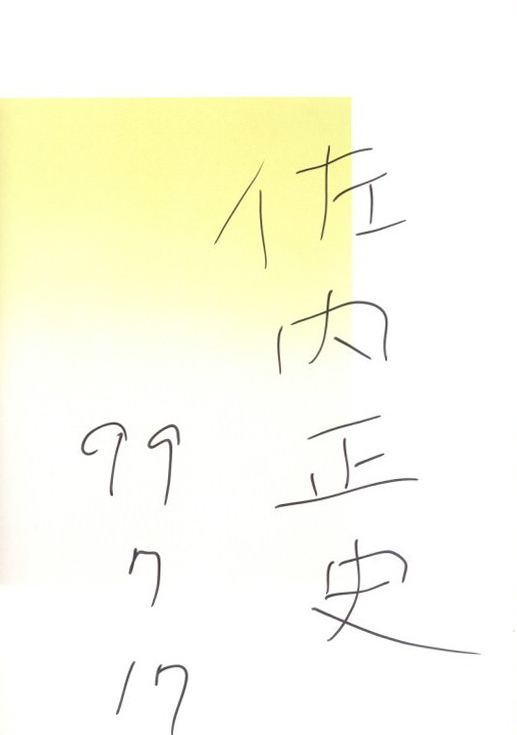 佐内正史
99
7
17